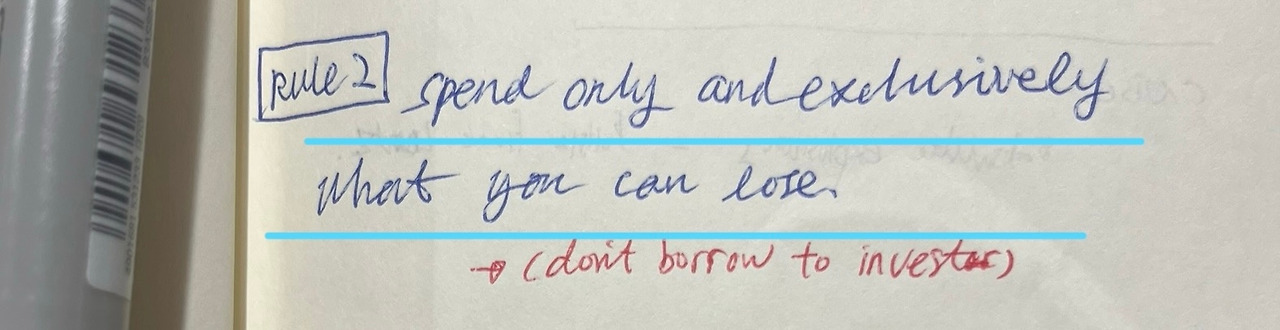 Rule 2 spend only and exclusively
what you can lose.
→ (don't borrow to invest)